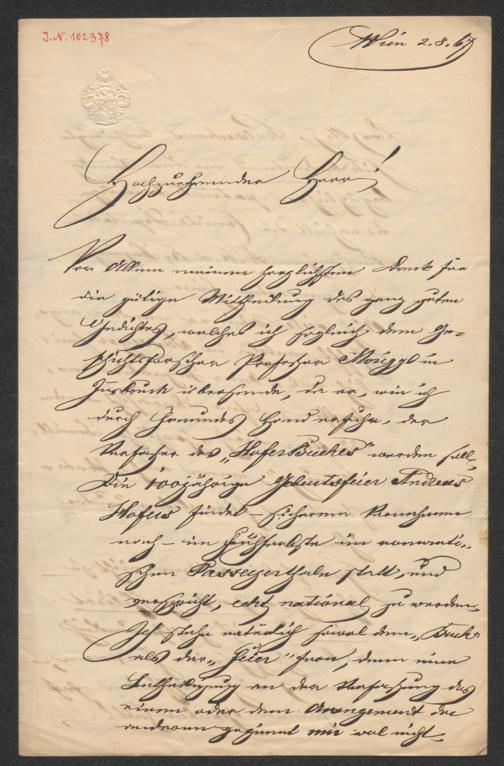 I.N. 102378
Wien 2.8.67
Hochzuehrender Herr!
Vor Allem meinen herzlichsten Dank für
die gütige Mittheilung des ganz guten
Gedichtes, welches ich sogleich dem Ge-
schichtsforscher Professor Moriggl in
Insbruck übersende, da er, wie ich
durch Freundes Hand erfuhr, der
Verfasser des „Hofer Buches" werden soll.
Die 100jährige Geburtsfeier Andreas
Hofers findet – sicherem Vernehmen
nach – im Spätherbste im romanti-
schen Passeyerthale statt, und
verspricht, echt national zu werden.
Ich stehe natürlich sowol dem „Buche"
als der „Feier" fern, denn eine
Betheiligung an der Verfassung des
einen oder dem Arrangement der
anderen geziemt mir wol nicht.